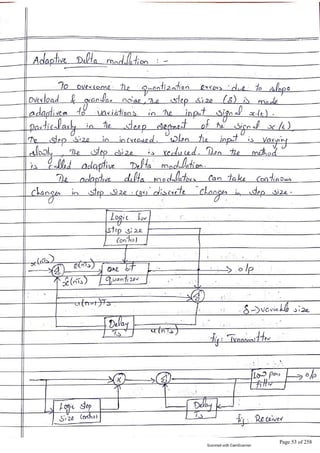 Adaptive Delta modulation :-
To overcome the quantization errors due to slope
overload & granular noise, the step size (δ) is made
adaptive to variations in the input signal x(t).
Particularly in the steep segment of the signal x(t)
The step size is increased. When the input is varying
slowly, the step size is reduced. Then the method
is called adaptive Delta modulation.
The adaptive delta modulators can take continuous
changes in step size (or) discrete changes in step size.
Logic for
step size
control
x(nTs)
e(nTs)
x̂(nTs)
one bit
quantizer
o/p
u(n-1)Ts
δ → variable size
Delay
Ts
u(nTs)
fig: Transmitter
Low pass
filter
o/p
Logic step
size control
Delay
Ts
fig: Receiver
Scanned with CamScanner
Page 53 of 258